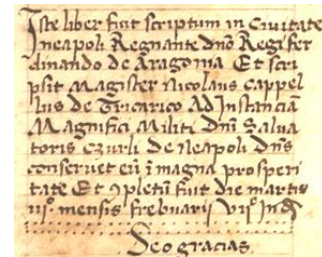 Iste liber fuit scriptum in Ciuitate
neapoli Regnante dño Regi fer
dinando de Aragonia Et scri
psit Magister nicolaus cappel
lus de Tricarico Ad Instanciã
Magnifici Militi Dñi Salua
toris czurli de neapoli dñs
conseruet eũ ĩ magna prosperi
tate Et ꝯpletũ fuit die martis
mensis frebuarij
Deo gracias